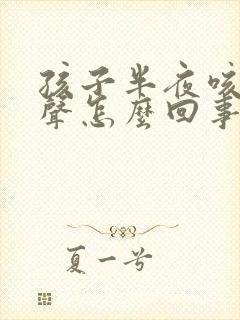 孩子半夜咳
聲怎麼回事
夏一號